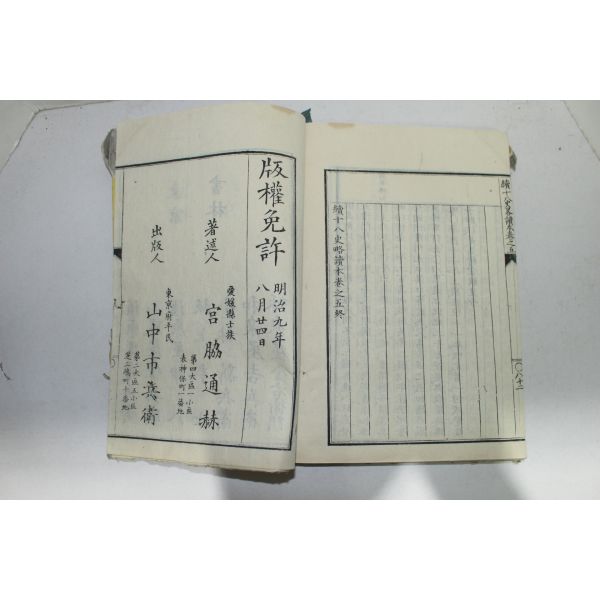 續十八史略讀本卷之五
八十二
續十八史略讀本卷之五終
版權免許
明治九年
八月廿四日
著述人
愛媛縣士族
宮脇通赫
第四大區一小區
表神保町一番地
出版人
東京府平民
山中市兵衛
第二大區五小區
芝三嶋町十番地